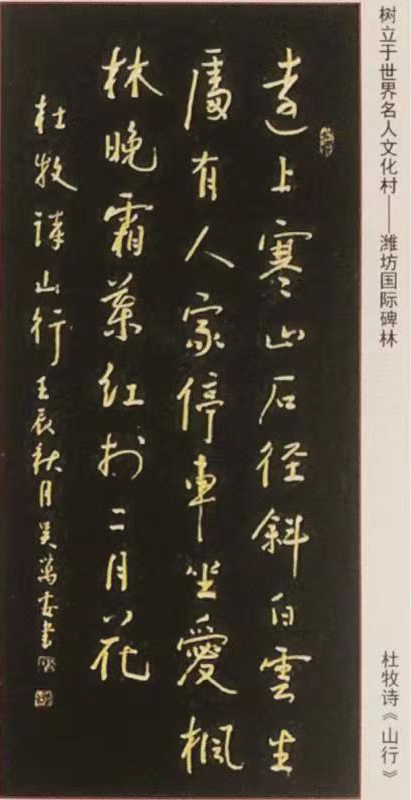 树立于世界名人文化村——潍坊国际碑林
杜牧诗《山行》
遠上寒山石径斜白雲生
處有人家停車坐愛楓
林晚霜葉红於二月花
杜牧詩山行 壬辰秋月吴萬書